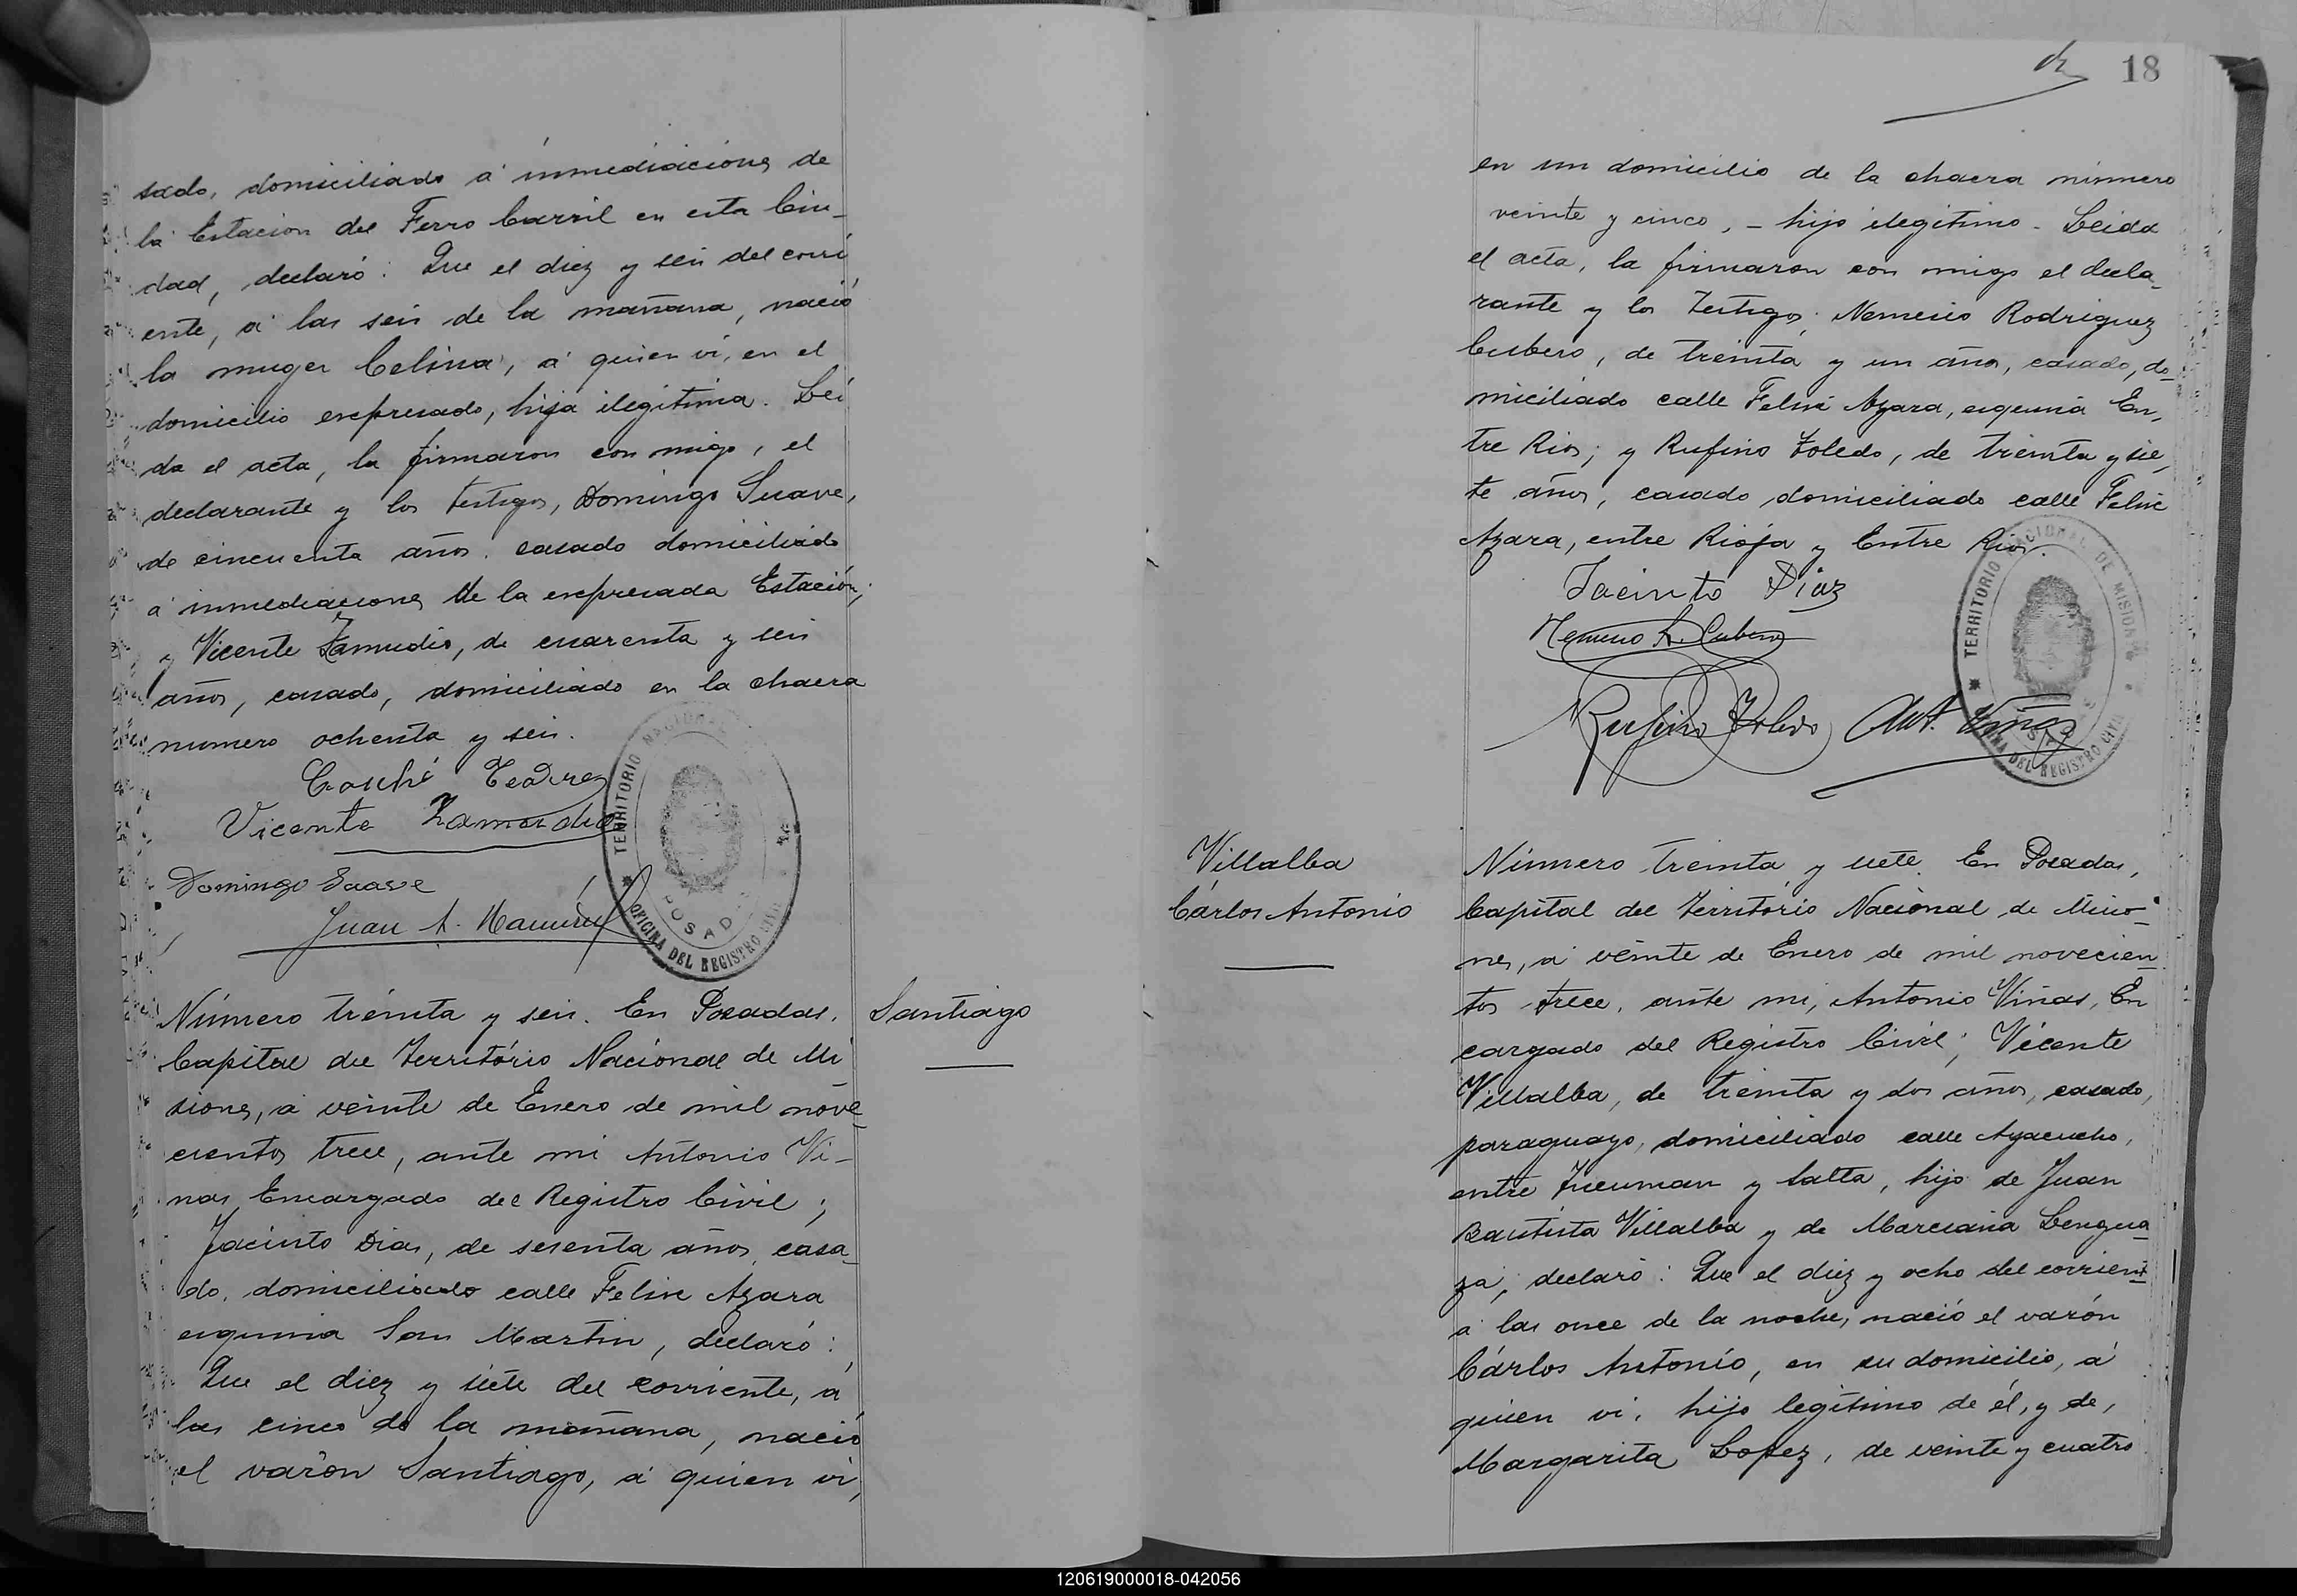 sado, domiciliado á inmediaciones de
la Estacion del Ferro Carril en esta Ciu-
dad, declaró: Que el diez y seis del corri
ente, á las seis de la mañana, nació
la muger Celina, á quien ví, en el
domicilio expresado, hija ilegitima. Leí
da el acta, la firmaron con migo, el
declarante y los testigos, Domingo Suave,
de cincuenta años, casado domiciliado
á inmediaciones de la expresada Estación;
y Vicente Zamudio, de cuarenta y seis
años, casado, domiciliado en la chacra
numero ochenta y seis.
Vicente Zamudio
Domingo Suave
Juan A.
TERRITORIO NACIONAL
POSADAS
OFICINA DEL REGISTRO CIVIL
Número treinta y seis. En Posadas,
Capital del Território Nacional de Mi
siones, á veinte de Enero de mil nove
cientos trece, ante mi Antonio Vi-
ñas, Encargado del Registro Civil;
Jacinto Dias, de sesenta años, casa
do, domiciliado calle Felix Azara
esquina San Martin, declaró:
Que el diez y siete del corriente, á
las cinco de la mañana, nació
el varón Santiago, á quien ví,
Santiago
18
en un domicilio de la chacra número
veinte y cinco, - hijo ilegitimo - Leida
el acta, la firmaron con migo el decla-
rante y los testigos; Nemesio Rodriguez
Cubero, de treinta y un años, casado, do-
miciliado calle Felix Azara, esquina En-
tre Rios; y Rufino Toledo, de treinta y sie-
te años, casado domiciliado calle Felix
Azara, entre Rioja y Entre Rios.
Jacinto Diaz
Nemesio R. Cubero
Rufino Toledo Ant. Viñas
TERRITORIO NACIONAL DE MISIONES
OFICINA DEL REGISTRO CIVIL
Villalba
Cárlos Antonio
Número treinta y siete. En Posadas,
Capital del Território Nacional de Misio-
nes, á veinte de Enero de mil novecien-
tos trece, ante mi, Antonio Viñas, En
cargado del Registro Civil; Vicente
Villalba, de treinta y dos años, casado,
paraguayo, domiciliado calle Ayacucho,
entre Tucuman y Salta, hijo de Juan
Bautista Villalba y de Marciana Lengua-
za, declaró: Que el diez y ocho del corrient
á las once de la noche, nació el varón
Cárlos Antonio, en su domicilio, á
quien ví, hijo legítimo de él, y de,
Margarita Lopez, de veinte y cuatro
120619000018-042056